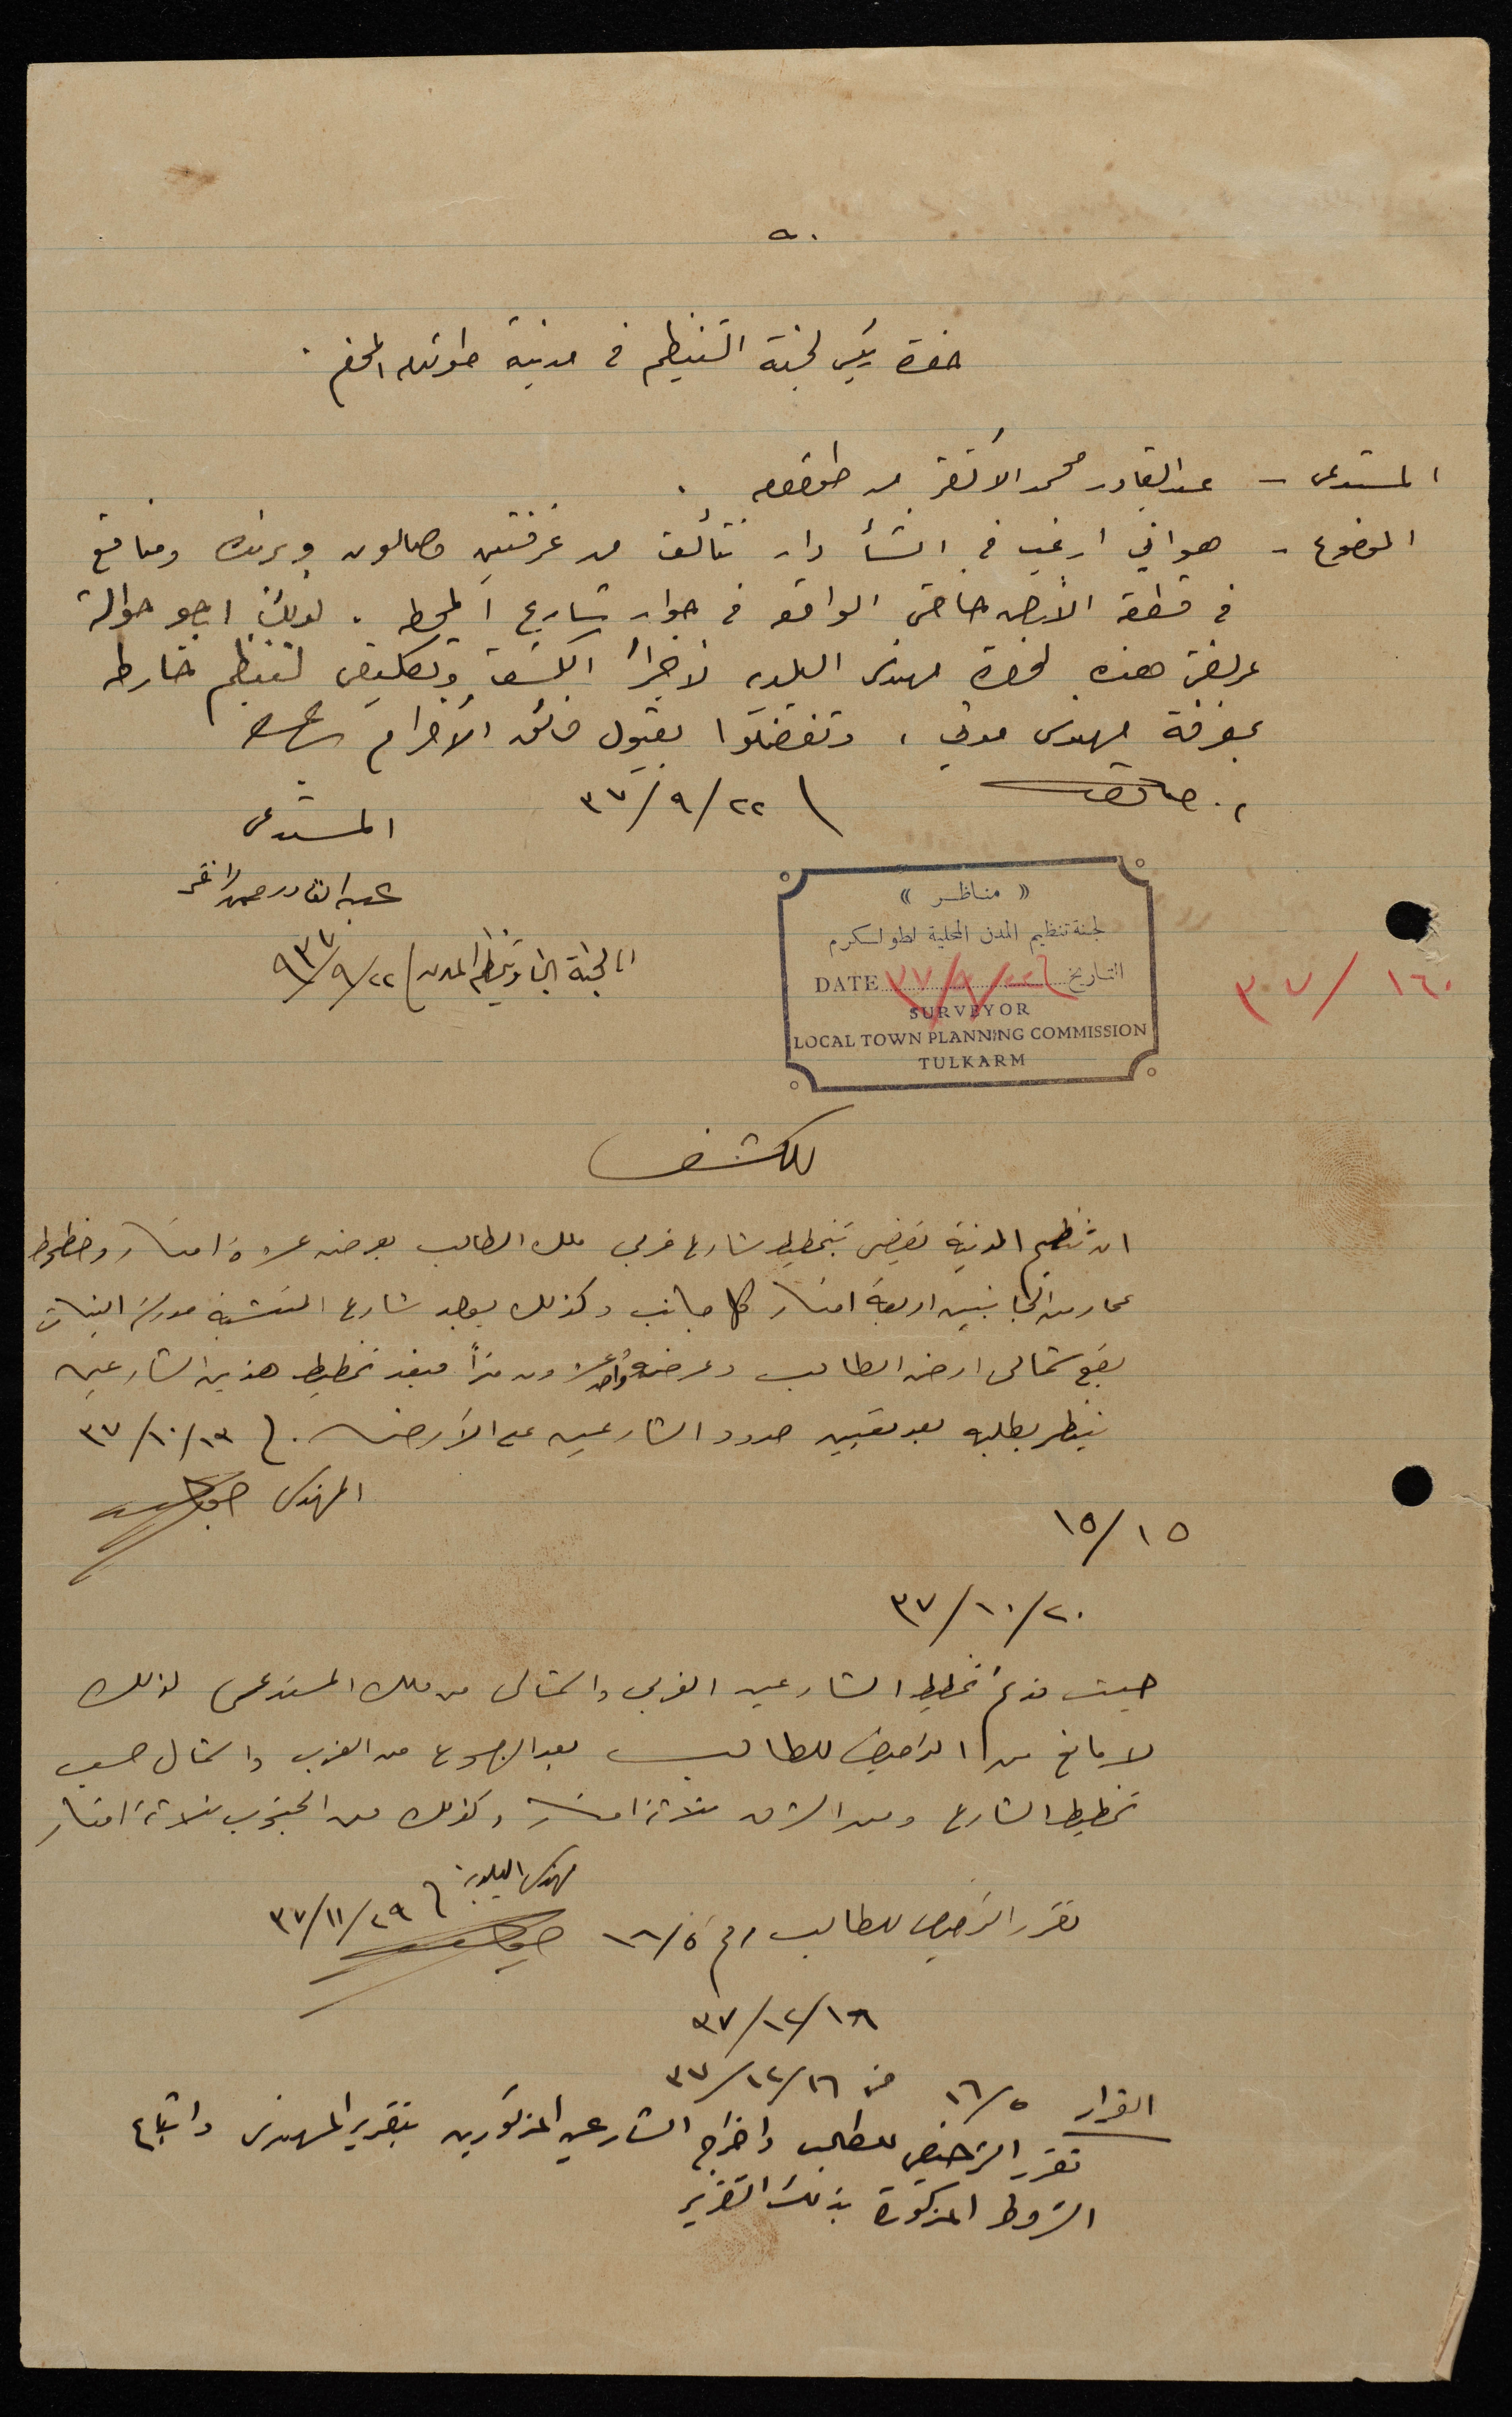 ٥٠
حضرة رئيس لجنة التنظيم في مدينة طولكرم المحترم .
المستدعي - عبد القادر محمد الاشقر من طولكرم .
الموضوع - هو اني ارغب في انشأ دار تتألف من غرفتين وصالون وبرنده ومنافع
في قطعة الأرض خاصتي الواقعه في جوار شارع المحطه . لذلك ارجو حوالة
عريضتي هذه لحضرة مهندس البلديه لاجرأ الكشف وتكليفي لتنظيم خارطه
بمعرفة مهندس مدني ، وتفضلوا بقبول فائق الاحترام
٢٢/٩/٣٧
المستدعي
عبد القادر محمد الاشقر
الى لجنة الابنية وتنظيم المدن ٢٢/٩/٩٣٧
« مناظر »
لجنة تنظيم المدن المحلية لطولكرم
التاريخ ٣٧/٩/٢٢ DATE
SURVEYOR
LOCAL TOWN PLANNING COMMISSION
TULKARM
١٦٠/٣٠٧
للكشف
ان تنظيم المدينة يقضي بتخطيط شارع غربي ملك الطالب بعرض عشرة امتار وخطوط
عمار من الجانبين اربعة امتار كل جانب وكذلك يوجد شارع المنشية مدرسة البنات
يقع شمالي ارض الطالب وعرضه واحد وعشرون متراً فبعد تخطيط هذين الشارعين
ينظر بطلبه بعد تعيين حدود الشارعين على الأرض . ١٣/١٠/٣٧
المهندس
١٥/١٥
٢٠/١٠/٣٧
حيث قد تم تخطيط الشارعين الغربي والشمالي من ملك المستدعي لذلك
لا مانع من الترخيص للطالب بعد الرجوع من الغرب والشمال حسب
تخطيط الشارع ومن الشرق ثلاثة امتار وكذلك من الجنوب ثلاثة امتار
مهندس البلدية ٢٩/١١/٣٧
تقرر الترخيص للطالب رقم ١٦/٥
١٦/١٢/٣٧
القرار ١٦/٥ في ١٦/١٢/٣٧
تقرر الترخيص للطالب واخراج الشارعين المذكورين بتقرير المهندس واتباع
الشروط المذكورة بذلك التقرير